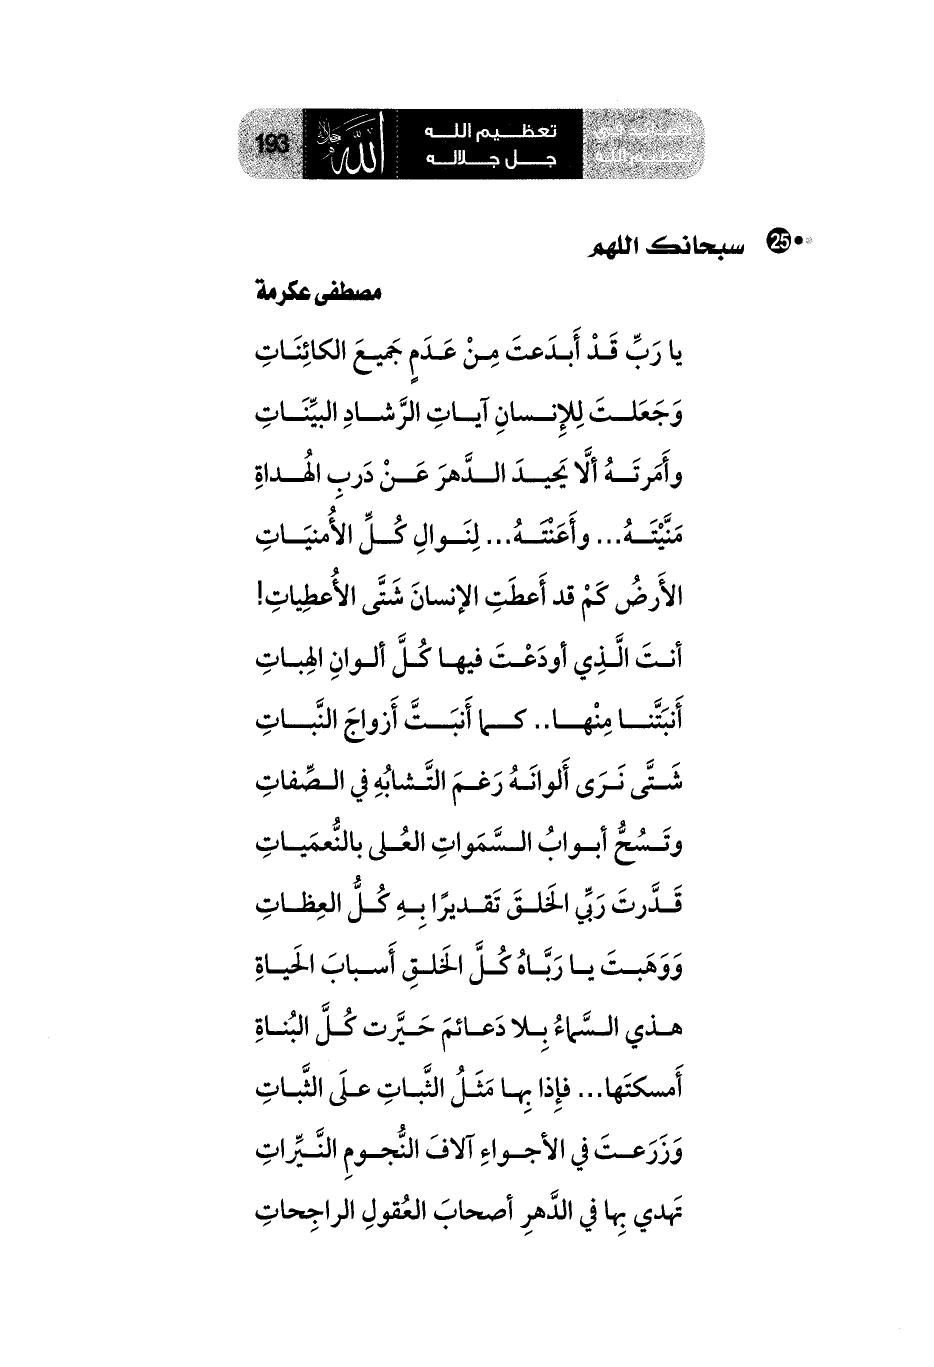 قصائد في
تعظيم الله
تعظيم الله
جل جلاله
الله جل جلاله
193
25 سبحانك اللهم
مصطفى عكرمة
يا رَبِّ قَدْ أَبدَعتَ مِنْ عَدَمٍ جَميعَ الكائِنَاتِ
وَجَعَلتَ لِلإِنسانِ آياتِ الرَّشادِ البيِّنَاتِ
وأَمَرتَهُ ألَّا يَحيدَ الدَّهرَ عَنْ دَربِ الهُداةِ
مَنَّيْتَهُ... وأَعَنْتَهُ... لِنَوالِ كُلِّ الأُمنيَاتِ
الأَرضُ كَمْ قد أَعطَتِ الإنسانَ شَتَّى الأُعطِياتِ!
أنتَ الَّذِي أودَعْتَ فيها كُلَّ ألوانِ الهِباتِ
أَنبَتَّنا مِنْها.. كما أَنبَتَّ أَزواجَ النَّباتِ
شَتَّى نَرَى أَلوانَهُ رَغمَ التَّشابُهِ في الصِّفاتِ
وتَسُحُّ أبوابُ السَّمَواتِ العُلى بالنُّعمَياتِ
قَدَّرتَ رَبِّي الخَلقَ تَقديرًا بِهِ كُلُّ العِظاتِ
وَوَهَبتَ يا رَبَّاهُ كُلَّ الخَلقِ أَسبابَ الحَياةِ
هذي السَّماءُ بِلا دَعائمَ حَيَّرت كُلَّ البُناةِ
أَمسكتَها... فإِذا بِها مَثَلُ الثَّباتِ علَى الثَّباتِ
وَزَرَعتَ في الأجواءِ آلافَ النُّجومِ النَّيِّراتِ
تَهدي بِها في الدَّهرِ أصحابَ العُقولِ الراجِحاتِ